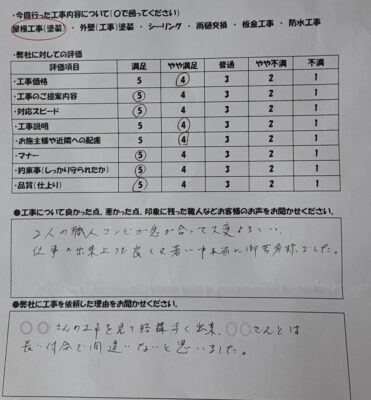 ・今回行った工事内容について(〇で囲ってください)
屋根工事(塗装)・外壁(工事)塗装・シーリング・雨樋交換・板金工事・防水工事
・弊社に対しての評価
評価項目 満足 やや満足 普通 やや不満 不満
・工事価格 5 4 3 2 1
・工事のご提案内容 5 4 3 2 1
・対応スピード 5 4 3 2 1
・工事説明 5 4 3 2 1
・お施主様や近隣への配慮 5 4 3 2 1
・マナー 5 4 3 2 1
・約束事(しっかり守られたか) 5 4 3 2 1
・品質(仕上り) 5 4 3 2 1
●工事について良かった点、悪かった点、印象に残った職人などお客様のお声をお聞かせください。
2人の職人コンビが息が合って大変よろしい、
仕事の出来上りも良く又暑い中本当に御苦労様でした。
●弊社に工事を依頼した理由をお聞かせください。
〇〇さんの工事を見て経緯早く出来、〇〇さんとは
長い付合で間違いないと思いました。